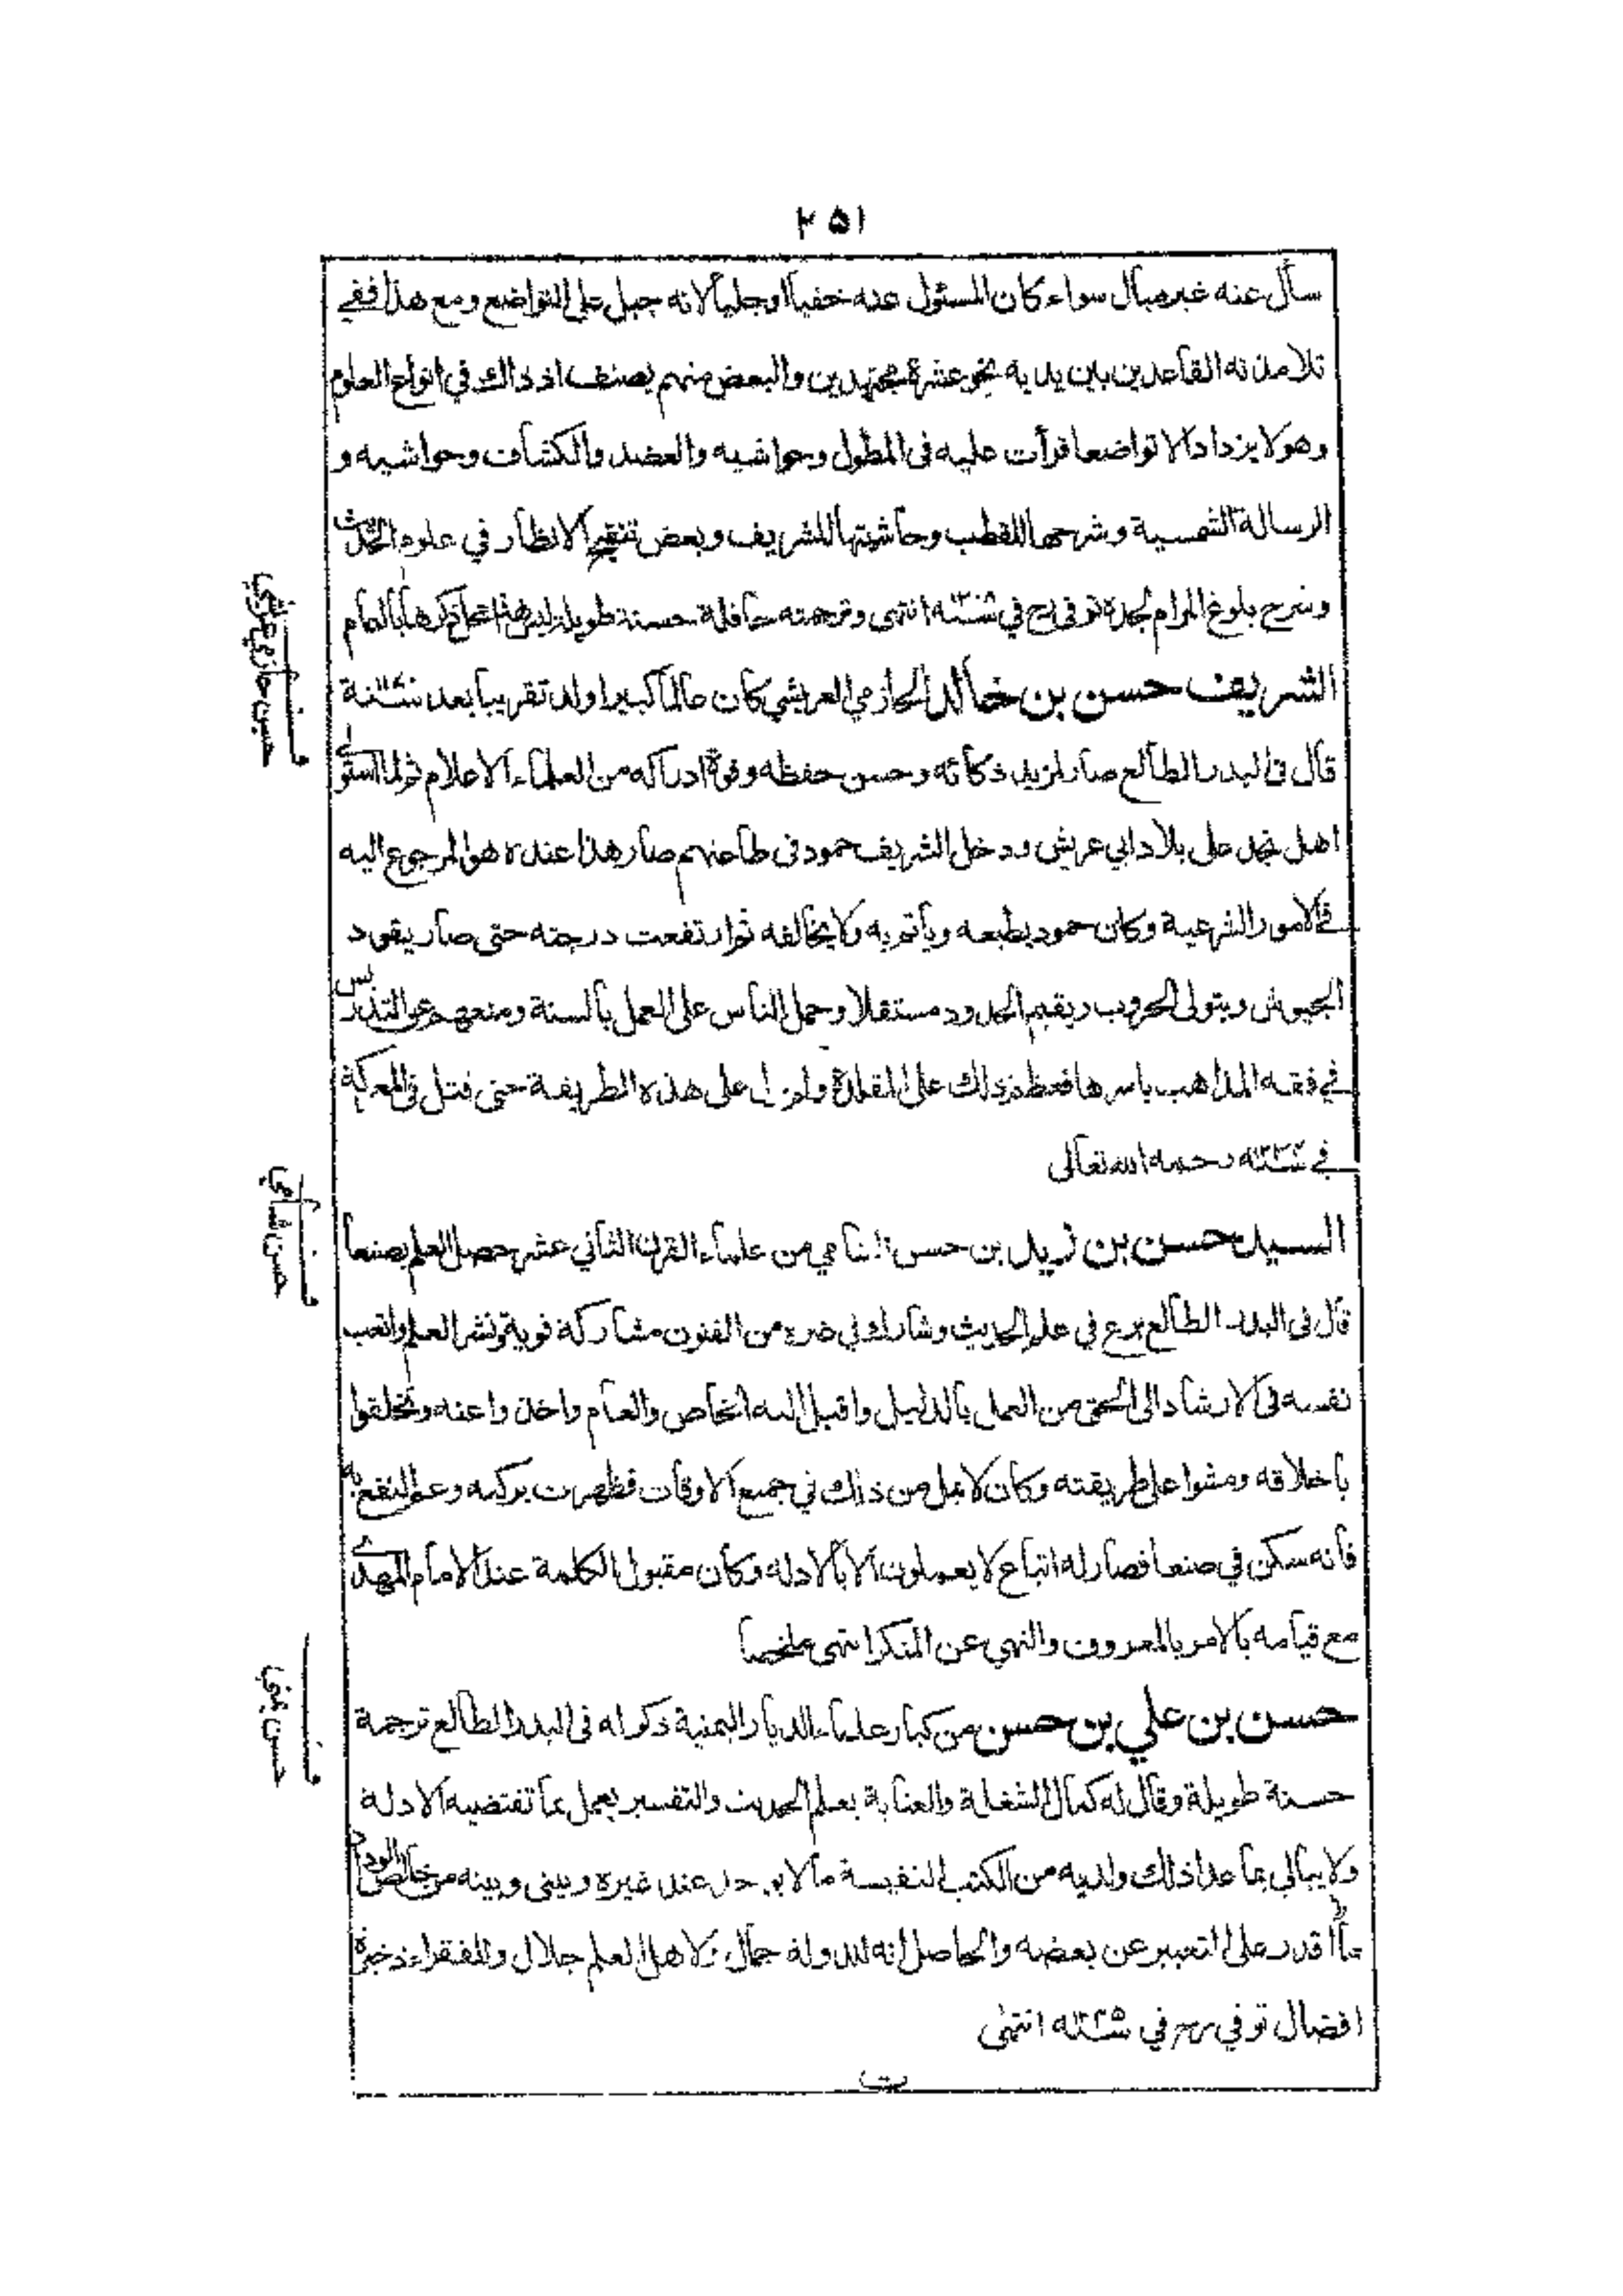 ۲۵۱
سأل عنه غير مبال سواء كان المسئول عنه خفيا او جليا لانه جبل على التواضع ومع هذا ففي
تلامذته القاعدين بين يديه نحو عشرة مجتهدين والبعض منهم يصنف اذ ذاك في انواع العلوم
وهو لا يزداد الا تواضعا قرأت عليه فى المطول وحواشيه والعضد والكشاف وحواشيه و
الرسالة الشمسية وشرحها للقطب وحاشيتها للشريف وبعض تنقيح الانظار في علوم الحديث
وشرح بلوغ المرام لجده توفى رح في سنة ۱۲۰۸ه انتهى وترجمته حافلة حسنة طويلة ليس هذا محل ذكرها بالتمام
الشريف حسن بن خالد الحازمي العريشي كان عالما كبيرا ولد تقريبا بعد سنة
قال فى البدر الطالع صار لمزيد ذكائه وحسن حفظه وقوة ادراكه من العلماء الاعلام ثم لما استولى
اهل نجد على بلاد ابي عريش ودخل الشريف حمود فى طاعتهم صار هذا عنده هو المرجوع اليه
في الامور الشرعية وكان حمود يطيعه ويأتمر به ولا يخالفه ثم ارتفعت درجته حتى صار يقود
الجيوش ويتولى الحروب ويقيم الحدود مستقلا وحمل الناس على العمل بالسنة ومنعهم عن التدريس
في فقه المذاهب باسرها فعظم ذلك على المقلدة ولم يزل على هذه الطريقة حتى قتل فى المعركة
في سنة ه رحمه الله تعالى
السيد حسن بن زيد بن حسن الشامي من علماء القرن الثاني عشر حصل العلم بصنعا
قال فى البدر الطالع برع فى علم الحديث وشارك في غيره من الفنون مشاركة قوية ونشر العلم واتعب
نفسه فى الارشاد الى الحق من العمل بالدليل واقبل اليه الخاص والعام واخذوا عنه وتخلقوا
باخلاقه ومشوا على طريقته وكان لا يمل من ذلك في جميع الاوقات فظهرت بركته وعم النفع به
فانه سكن في صنعا فصار له اتباع لا يعملون الا بالادله وكان مقبول الكلمة عند الامام المهدي
مع قيامه بالامر بالمعروف والنهي عن المنكر انتهى ملخصا
حسن بن علي بن حسن من كبار علماء الديار اليمنية ذكر له فى البدر الطالع ترجمة
حسنة طويلة وقال له كمال الشغلة والعناية بعلم الحديث والتفسير يعمل بما تقتضيه الادلة
ولا يبالي بما عدا ذلك ولديه من الكتب النفيسة ما لا يوجد عند غيره وبينى وبينه من خالص الوداد
ما لا اقدر على التعبير عن بعضه والحاصل انه للدولة جمال ولاهل العلم جلال وللفقراء ذخيرة
افضال توفي رح في سنة ۱۲۲۵ه انتهى
ت
حسن حازمي عريشي
حسن شامي
حسن يمني